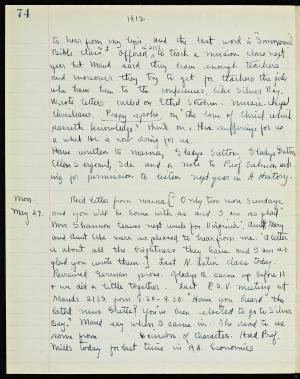 74
1912
to hear from my boys and the last word is "Immanuel"
Bible Class. Offered to teach a mission class next
year but Maud said they have enough teachers
and moreover they try to get for teachers the girls
who have been to the conferences, like Silver Bay.
Wrote letters. Called on Ethel
Christians. spoke on the love of Christ which
passeth knowledge. Think on, His sufferings for us
& what He is now doing for us.
Have written to mama, Gladys Sutton, Gladys
Ellen Sargeant, Ida and a note to Prof.
ing for permission to listen next year in A History.
Mon.
May 27.
Rec'd letter from mama "Only two more Sundays
and you will be home with us and I am so glad."
Mrs Shannon leaves next week for Virginia. Aunt Mary
and Aunt Lke were so pleased to hear from me. A letter
is about all the brightness they have and I am so
glad you wrote them. Last N. Latin class today.
Received German prose. Gladys B. came up before 11
& we did a little together. Last P.S.V. meeting at
Maud's 2153 from 8.30-9.30. "Have you heard the
latest news Greta? You've been elected to go to Silver
Bay." Maud say when I came in. She read to us
some from Decision of Character. Had Prof.
Mills today for last time in A.A. Economics